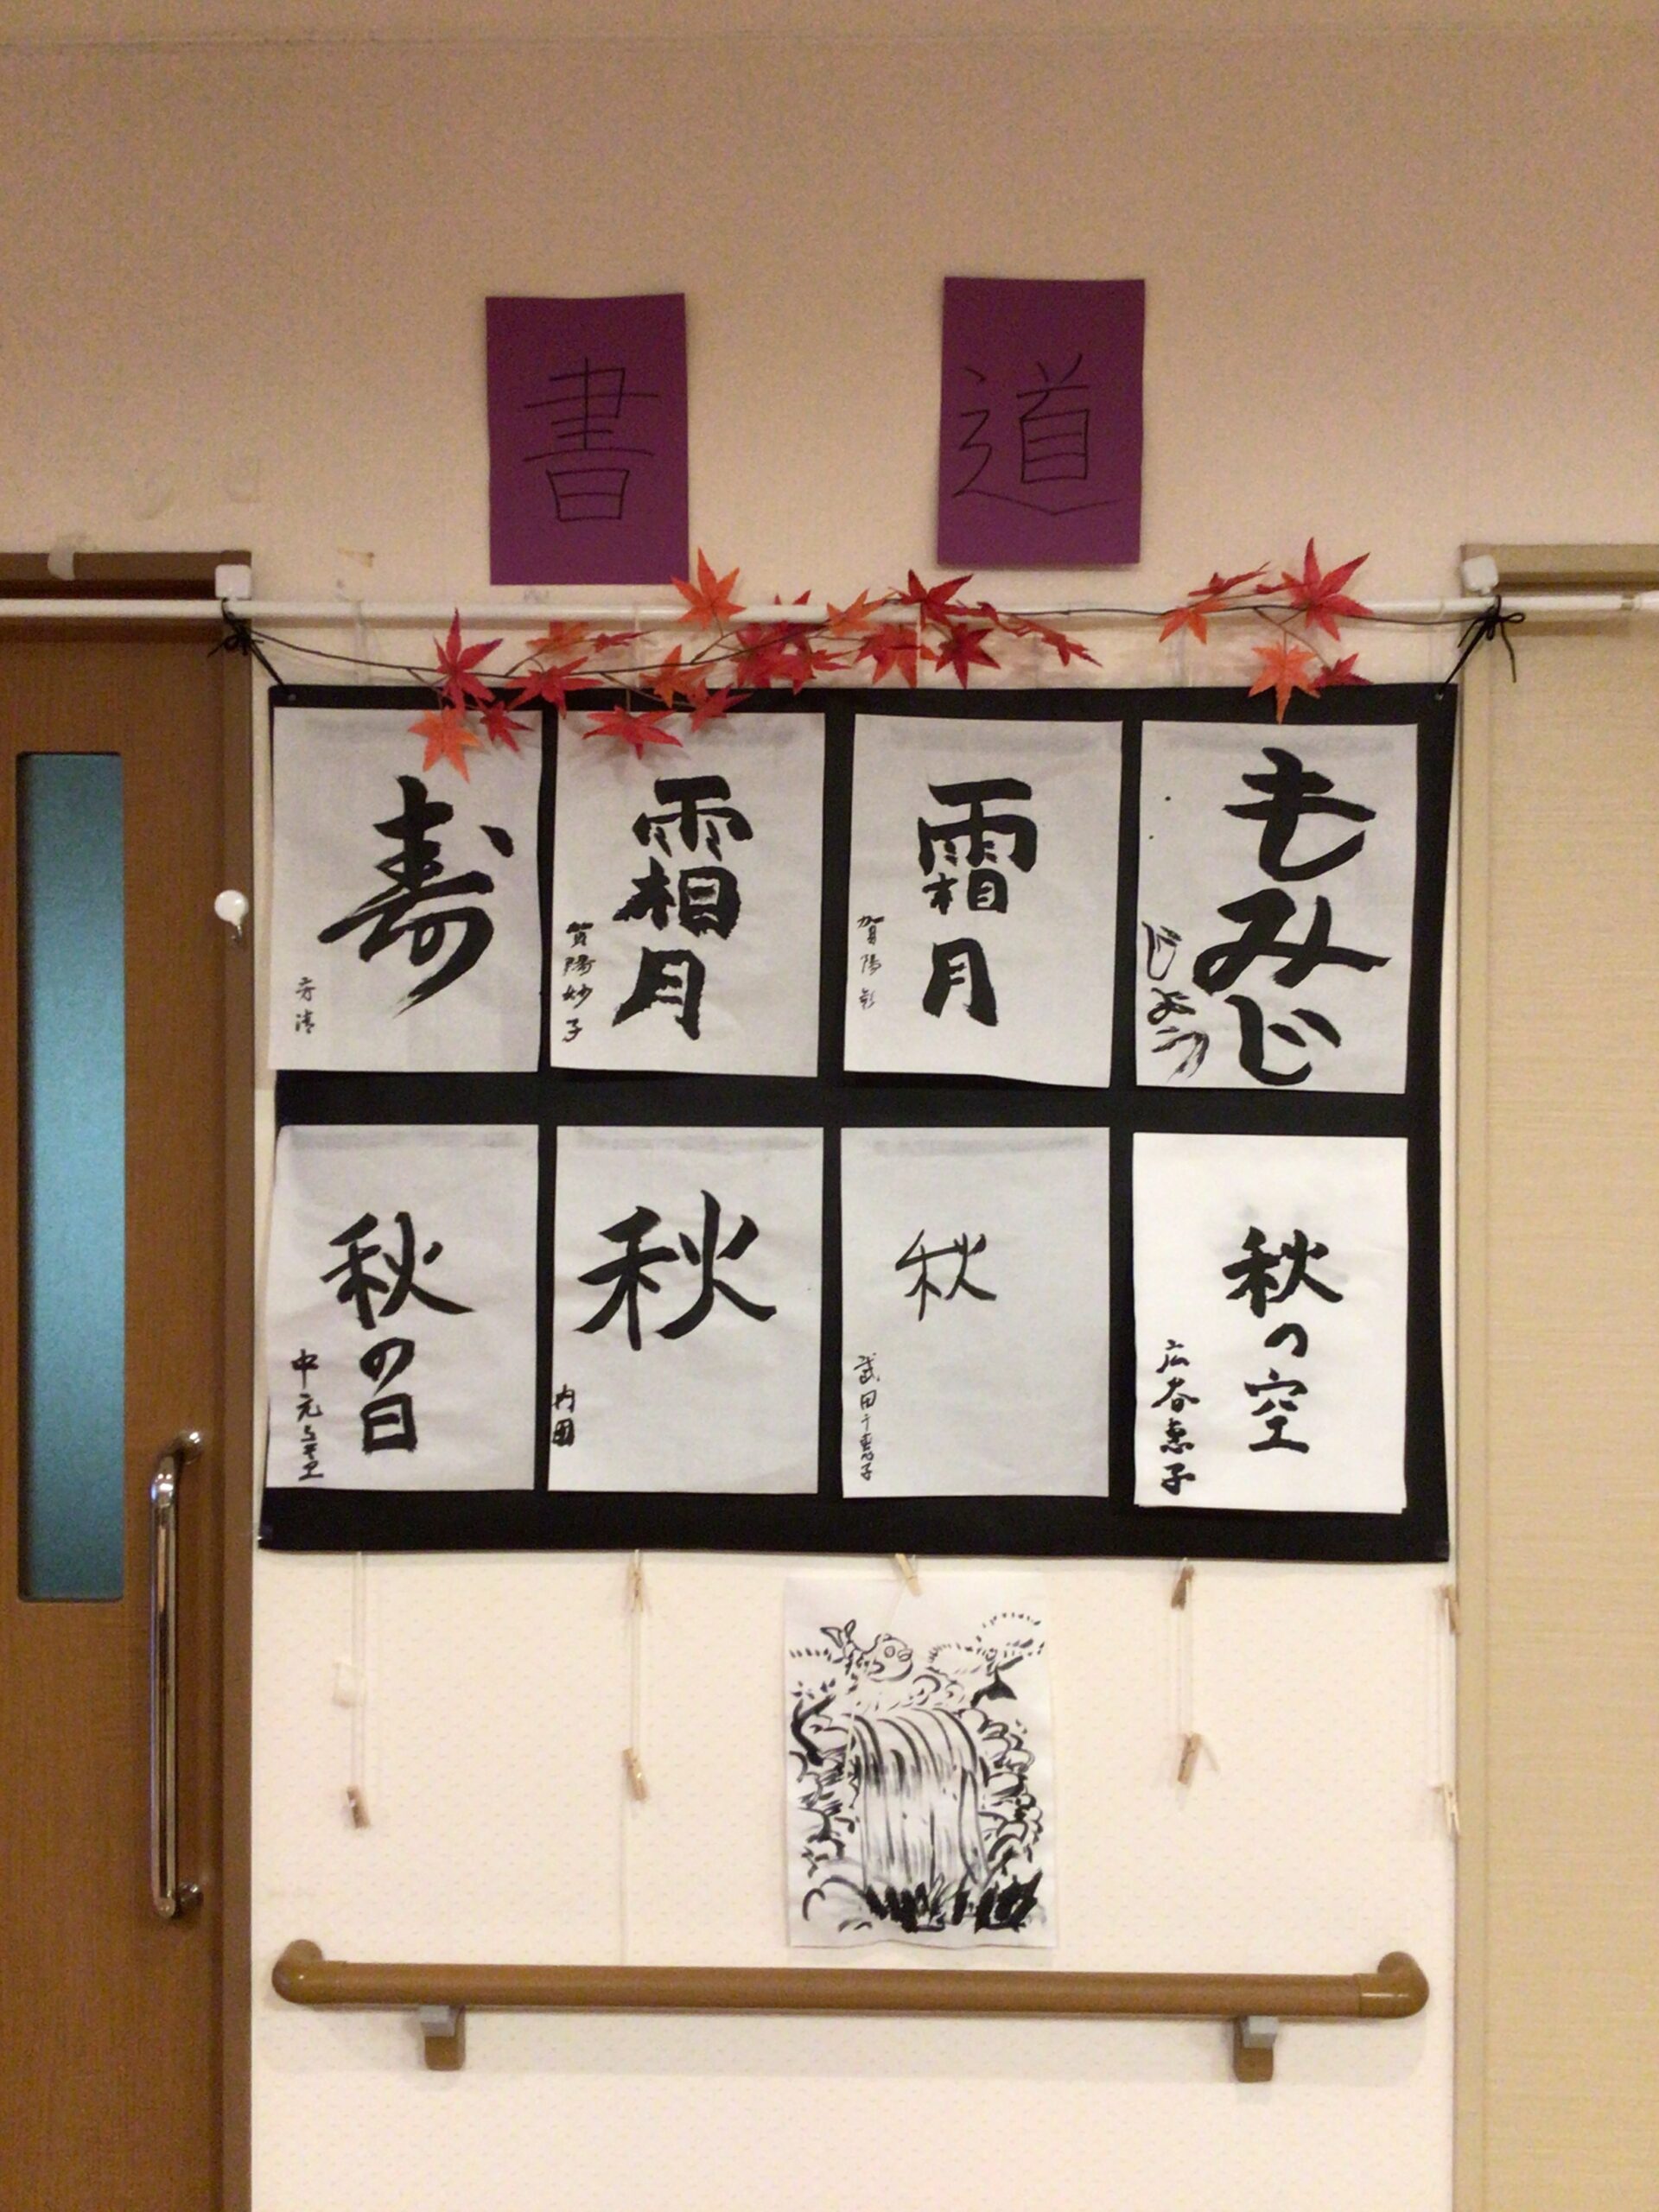 書道
寿
霜月
賀陽妙子
霜月
賀陽彰
もみじ
じょう
秋の日
秋
内田
秋
武田千恵子
秋の空
広谷恵子